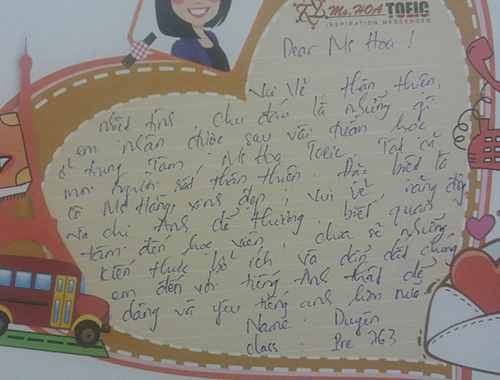 Ms. HOA TOEIC
INSPIRATION MESSENGER
Dear Ms Hoa !
Vui vẻ, thân thiện,
nhiệt tình, chu đáo là những gì
em nhận được sau vài tuần học
ở trung Tâm Ms Hoa Toeic. Tất cả
mọi người rất thân thiện. Đặc biệt là
cô Ms Hằng xinh đẹp, vui vẻ, năng động
và chị Anh dễ thương, biết quan
tâm đến học viên, chia sẻ những
kiến thức bổ ích và dẫn dắt chúng
em đến với tiếng Anh thật dễ
dàng và yêu tiếng anh hơn nữa.
Name : Duyên
Class : Pre 263